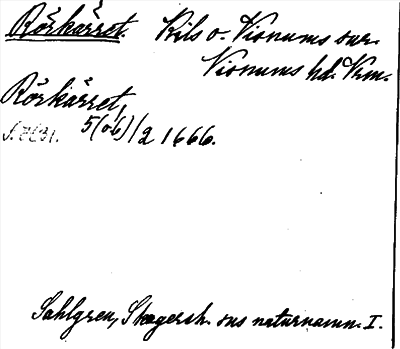 Rörkärret. Kils o. Visnums snr.
Visnums hd. Vrm.
Rörkärret,
5(o6)/2 1666.
Sahlgren, Skagersh. sns naturnamn. I.